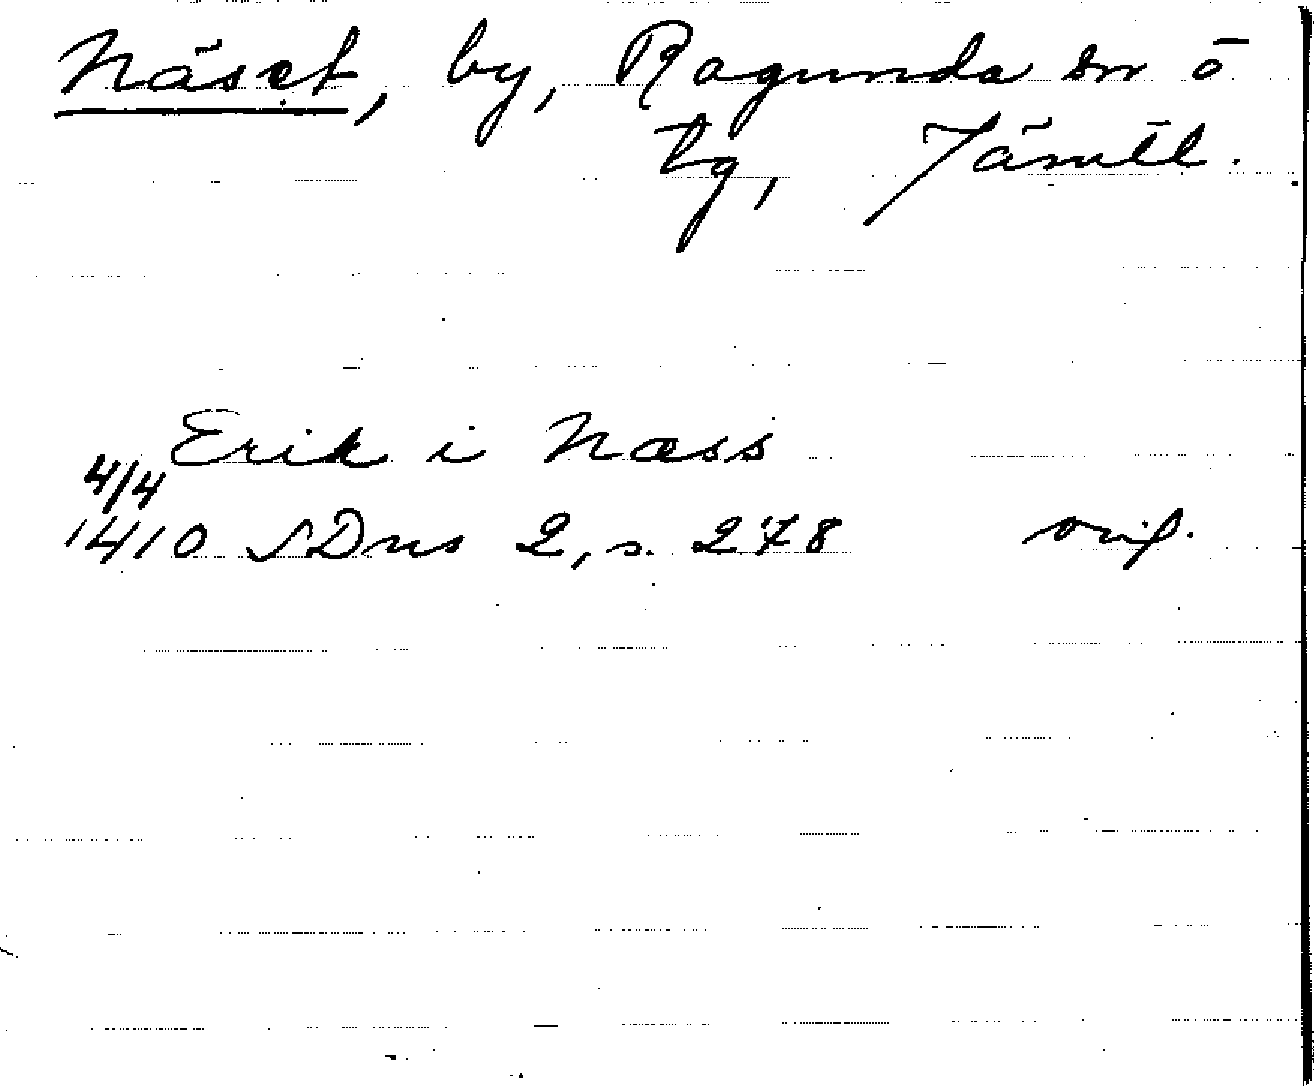 Näset, by, Ragunda sn o
tg, Jämtl.
Erik i Næss
4/4
1410 SDns 2, s. 278 orig.